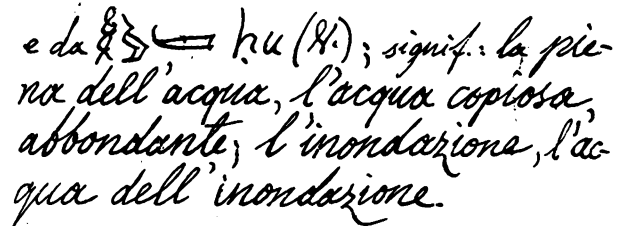 e da ḥu (N.); signif.: la pie-
na dell'acqua, l'acqua copiosa,
abbondante; l'inondazione, l'ac-
qua dell'inondazione.